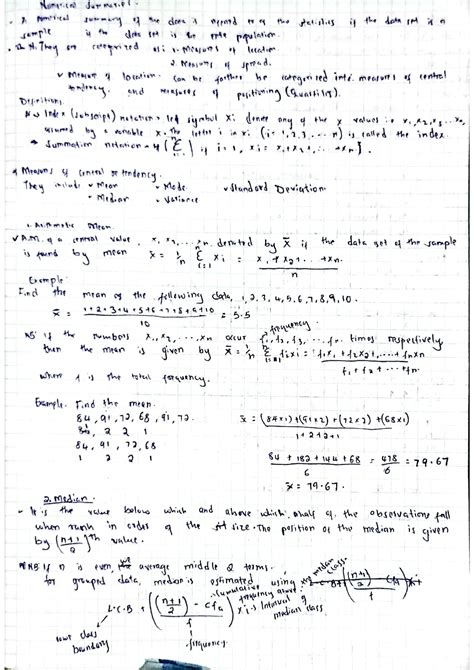 Numerical Summaries.
A numerical summary of the data is refered to as the statistics if the data set is a
sample if the data set is the entire population.
They are categorized as: 1. Measures of location
2. Measures of spread.
✓ Measures of location can be further be categorised into measures of central
tendency, and measures of positioning (Quantiles).
Definitions
Index (subscript) notation - let symbol Xi denote any of the x values i.e x₁, x₂, x₃ ... xₙ
assumed by a variable X. The letter i in xi (i = 1, 2, 3, ... n) is called the index.
Summation notation
Measures of central tendency.
They include • Mean • Mode • Standard Deviation
• Median • Variance
1. Arithmetic Mean
✓ A.M. of a central value, x₁, x₂, ... xₙ denoted by x̄ if the data set of the sample
is found by mean x̄ = 1/n Σ xi = x₁ + x₂ + ... + xₙ / n
Example
Find the mean of the following data, 1, 2, 3, 4, 5, 6, 7, 8, 9, 10.
x̄ = 1+2+3+4+5+6+7+8+9+10 / 10 = 5.5
frequency
NB: If the numbers x₁, x₂, ..., xₙ occur f₁, f₂, f₃, ... fₙ times respectively
then the mean is given by x̄ = 1/n Σ fixi = f₁x₁ + f₂x₂ + ... + fₙxₙ / f₁ + f₂ + ... + fₙ
where is the total frequency.
Example. Find the mean.
84, 91, 72, 68, 91, 72.
84, 91, 72, 68
1 2 2 1
x̄ = (84×1)+(91×2)+(72×2)+(68×1) / 1+2+2+1
84 + 182 + 144 + 68 / 6 = 478 / 6 = 79.67
x̄ = 79.67.
2. Median.
- It is the value below which and above which, half of the observations fall
when rank in order of the size. The position of the median is given
by (n+1 / 2)th value.
NB If n is even, average middle 2 terms.
for grouped data, median is estimated using
L.C.B + ((n+1 / 2) - Cfa / f) × i → Interval of median class
cumulative frequency above the median class
lower class boundary
frequency